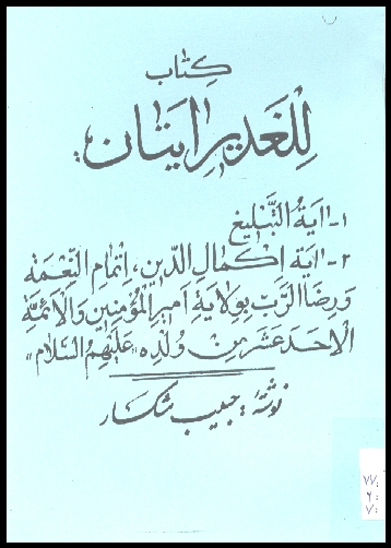 كِتٰاب
لِلغَديرِ ايَتان:
۱-اٰيَةُ التَّبْليغ
۲-اٰيَة اِكْمٰالِ الدّين، اِتْمٰامِ النِّعْمَة
وَرِضَا الرَّبِّ بِوِلايَةِ اَميرِالمُؤْمِنين وَالْاَئِمَّةِ
الْاَحَدَعَشَرَمِنْ وُلْدِه «عَلَيْهِمُ السَّلام»
نوشتهٔ: حبیب شکسار
۷۷:
۶:
۷: